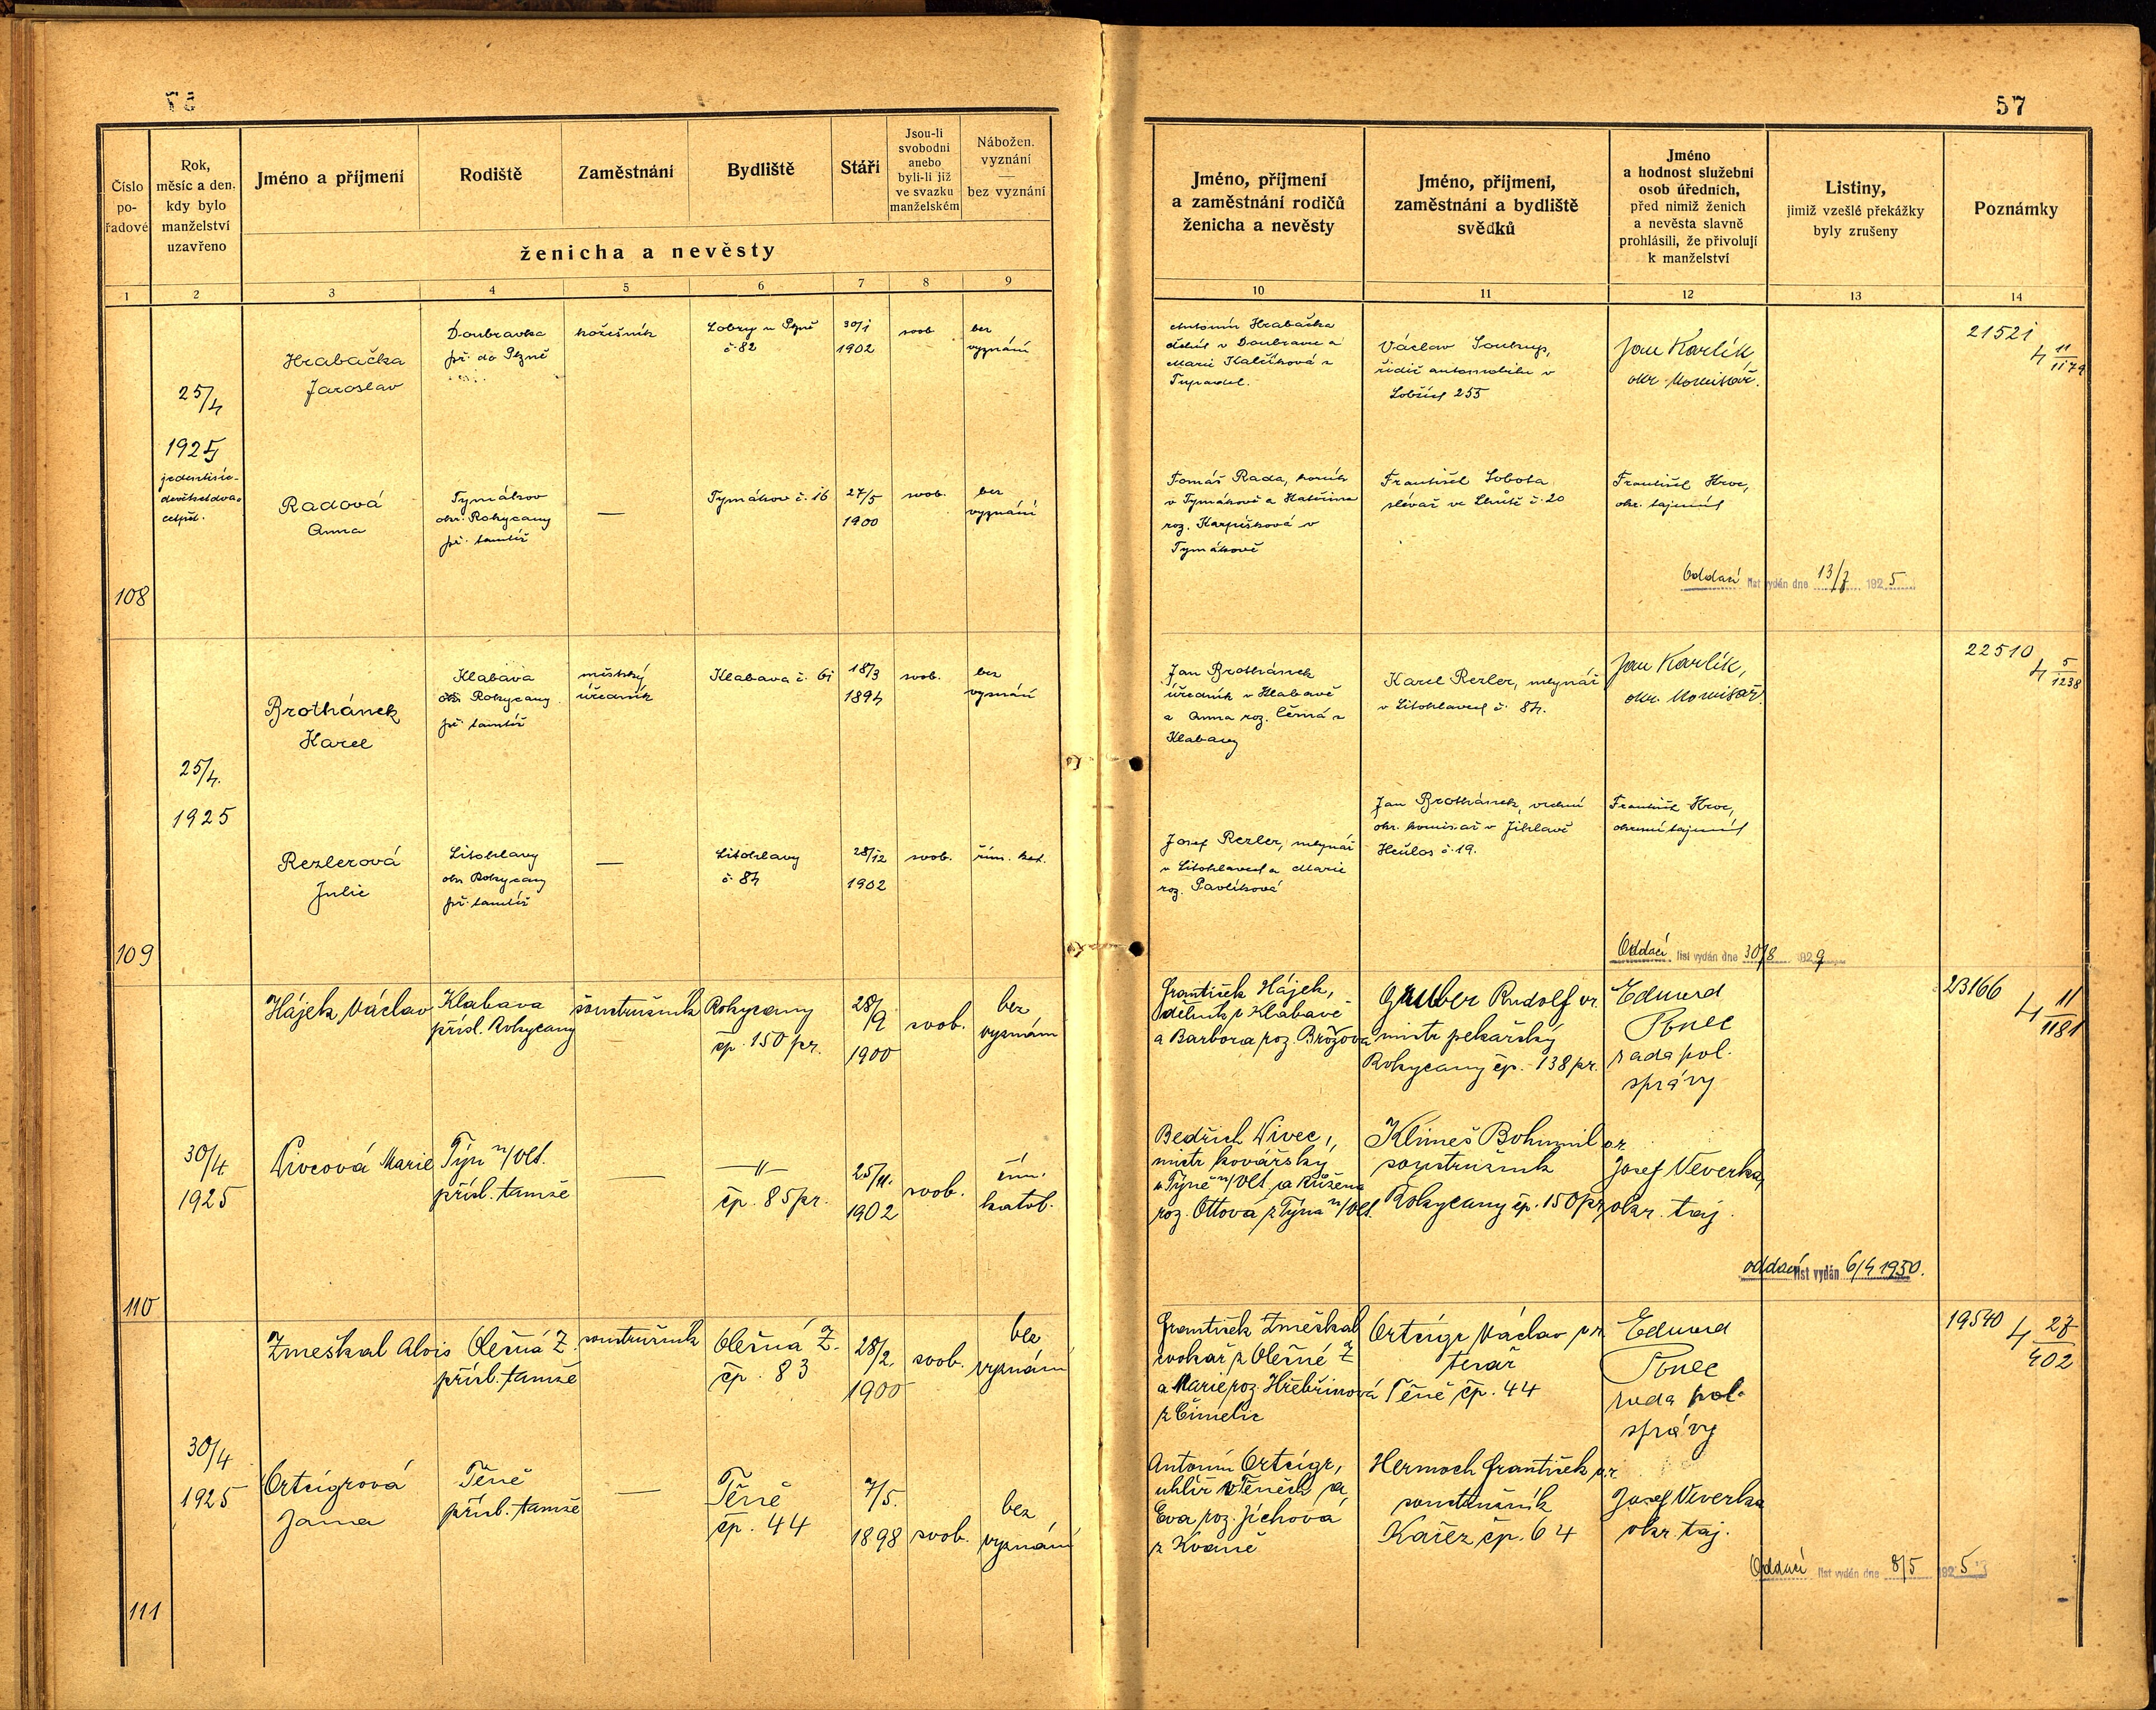 57
Číslo
po-
řadové
Rok,
měsíc a den,
kdy bylo
manželství
uzavřeno
Jméno a příjmení
Rodiště
Zaměstnání
Bydliště
Stáří
Jsou-li
svobodni
anebo
byli-li již
ve svazku
manželském
Nábožen.
vyznání
—
bez vyznání
ženicha a nevěsty
1 2 3 4 5 6 7 8 9
108
25/4
1925
jedentisíc-
devětsetdva-
cetpět.
Hrabačka
Jaroslav
Doubravka
př. do Plzně
kožišník
Lobzy u Plzně
č. 82
30/1
1902
svob.
bez
vyznání
Radová
Anna
Tymákov
okr. Rokycany
př. tamtéž
—
Tymákov č. 16
27/5
1900
svob.
bez
vyznání
109
25/4.
1925
Brothánek
Karel
Klabava
okr. Rokycany
př. tamtéž
městský
úředník
Klabava č. 61
18/3
1894
svob.
bez
vyznání
Rezlerová
Julie
Litohlavy
okr. Rokycany
př. tamtéž
—
Litohlavy
č. 84
28/12
1902
svob.
řím. kat.
110
30/4
1925
Hájek Václav
Klabava
přísl. Rokycany
soustružník
Rokycany
čp. 150 pr.
28/9
1900
svob.
bez
vyznání
Divcová Marie
Týn n/Vlt.
přísl. tamže
—
—"—
čp. 85 pr.
25/11.
1902
svob.
řím.
katol.
111
30/4
1925
Zmeškal Alois
Olešná Z.
přísl. tamže
soustružník
Olešná Z.
čp. 83
28/2.
1900
svob.
bez
vyznání
Ortcigrová
Jana
Těně
přísl. tamže
—
Těně
čp. 44
7/5.
1898
svob.
bez
vyznání
57
Jméno, příjmení
a zaměstnání rodičů
ženicha a nevěsty
Jméno, příjmení,
zaměstnání a bydliště
svědků
Jméno
a hodnost služební
osob úředních,
před nimiž ženich
a nevěsta slavně
prohlásili, že přivolují
k manželství
Listiny,
jimiž vzešlé překážky
byly zrušeny
Poznámky
10 11 12 13 14
Antonín Hrabačka
dělník v Doubravce a
Marie Kalčíková z
Václav Soukup,
řidič automobilu v
Lobzích 255
Jan Karlík,
okr. komisař.
21521
4 11/1179
Tomáš Rada, horník
v Tymákově a Kateřina
roz. Karpíšková v
Tymákově
František Sobota
slévač ve Lhůtě č. 20
František Hrve,
okr. tajemník
Oddací list vydán dne 13/7 1925
Jan Brothánek
úředník v Klabavě
a Anna roz. Černá z
Klabavy
Karel Rezler, mlynář
v Litohlavech č. 84.
Jan Karlík,
okr. komisař.
22510
4 5/1238
Josef Rezler, mlynář
v Litohlavech a Marie
roz. Pavlíková
Jan Brothánek, vrchní
okr. komisař v Jihlavě
Heulos č. 19.
František Hrve,
okresní tajemník
Oddací list vydán dne 30/8 1929
František Hájek,
dělník z Klabavě
a Barbora roz. Brožová
Gruber Rudolf vr.
mistr pekařský
Rokycany čp. 138 pr.
Eduard
Ponec
rada pol.
správy
23166
4 11/1181
Bedřich Divec,
mistr kovářský
v Týně n/Vlt. a Růžena
roz. Ottová z Týna n/Vlt.
Klimeš Bohumil v.r.
soustružník
Rokycany čp. 150 pr.
Josef Veverka,
okr. taj.
oddací list vydán 6/4 1950.
František Zmeškal
cvokař z Olešné Z
a Marie roz. Hřebřinová
z Čimelic
Ortcigr Václav v.r.
tesař
Těně čp. 44
Eduard
Ponec
rada pol.
správy
19540
4 27/402
Antonín Ortcigr,
uhlíř v Těních a
Eva roz. Jíchová
z Kvaně
Hermoch František v.r.
soustružník
Kařez čp. 64
Josef Veverka
okr. taj.
Oddací list vydán dne 8/5 1925